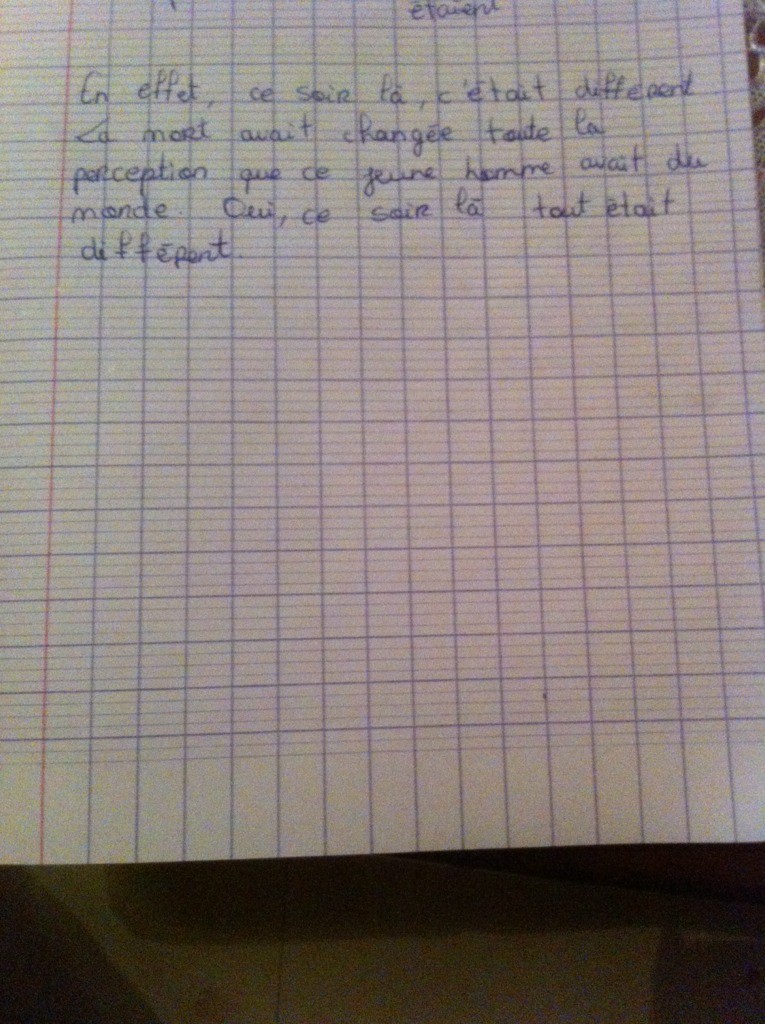 étaient
En effet, ce soir là, c'était différent
La mort avait changée toute la
perception que ce jeune homme avait du
monde. Oui, ce soir là tout était
différent.